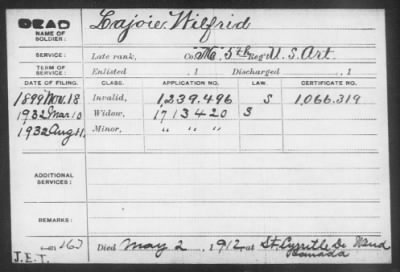 DEAD
NAME OF SOLDIER: Lajoie, Wilfrid
SERVICE: Late rank, Co. "M", 5th Reg't U.S. Art.
TERM OF SERVICE: Enlisted , 1 Discharged , 1
DATE OF FILING. CLASS. APPLICATION NO. LAW. CERTIFICATE NO.
1899 Nov. 18 Invalid, 1,239,496 S 1,066,319
1932 Mar 10 Widow, 1713420 S
1932 Aug 11 Minor, " " "
ADDITIONAL SERVICES:
REMARKS:
Died May 2, 1912 at St. Cyrille De
Canada
J.E.T.